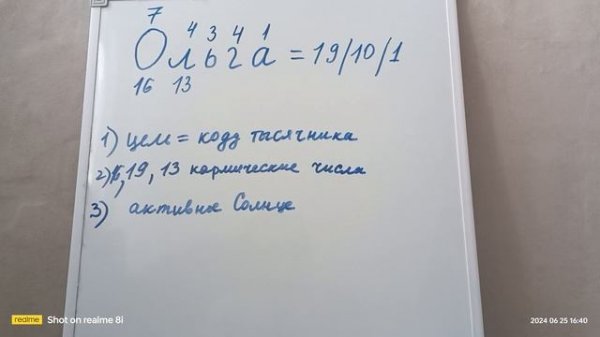 7 4 3 4 1
Ольга = 19/10/1
16 13
1) цем = кодд тысячника
2) 16, 19, 13 кармические числа
3) активное Солнце
realme Shot on realme 8i
2024 06 25 16:40